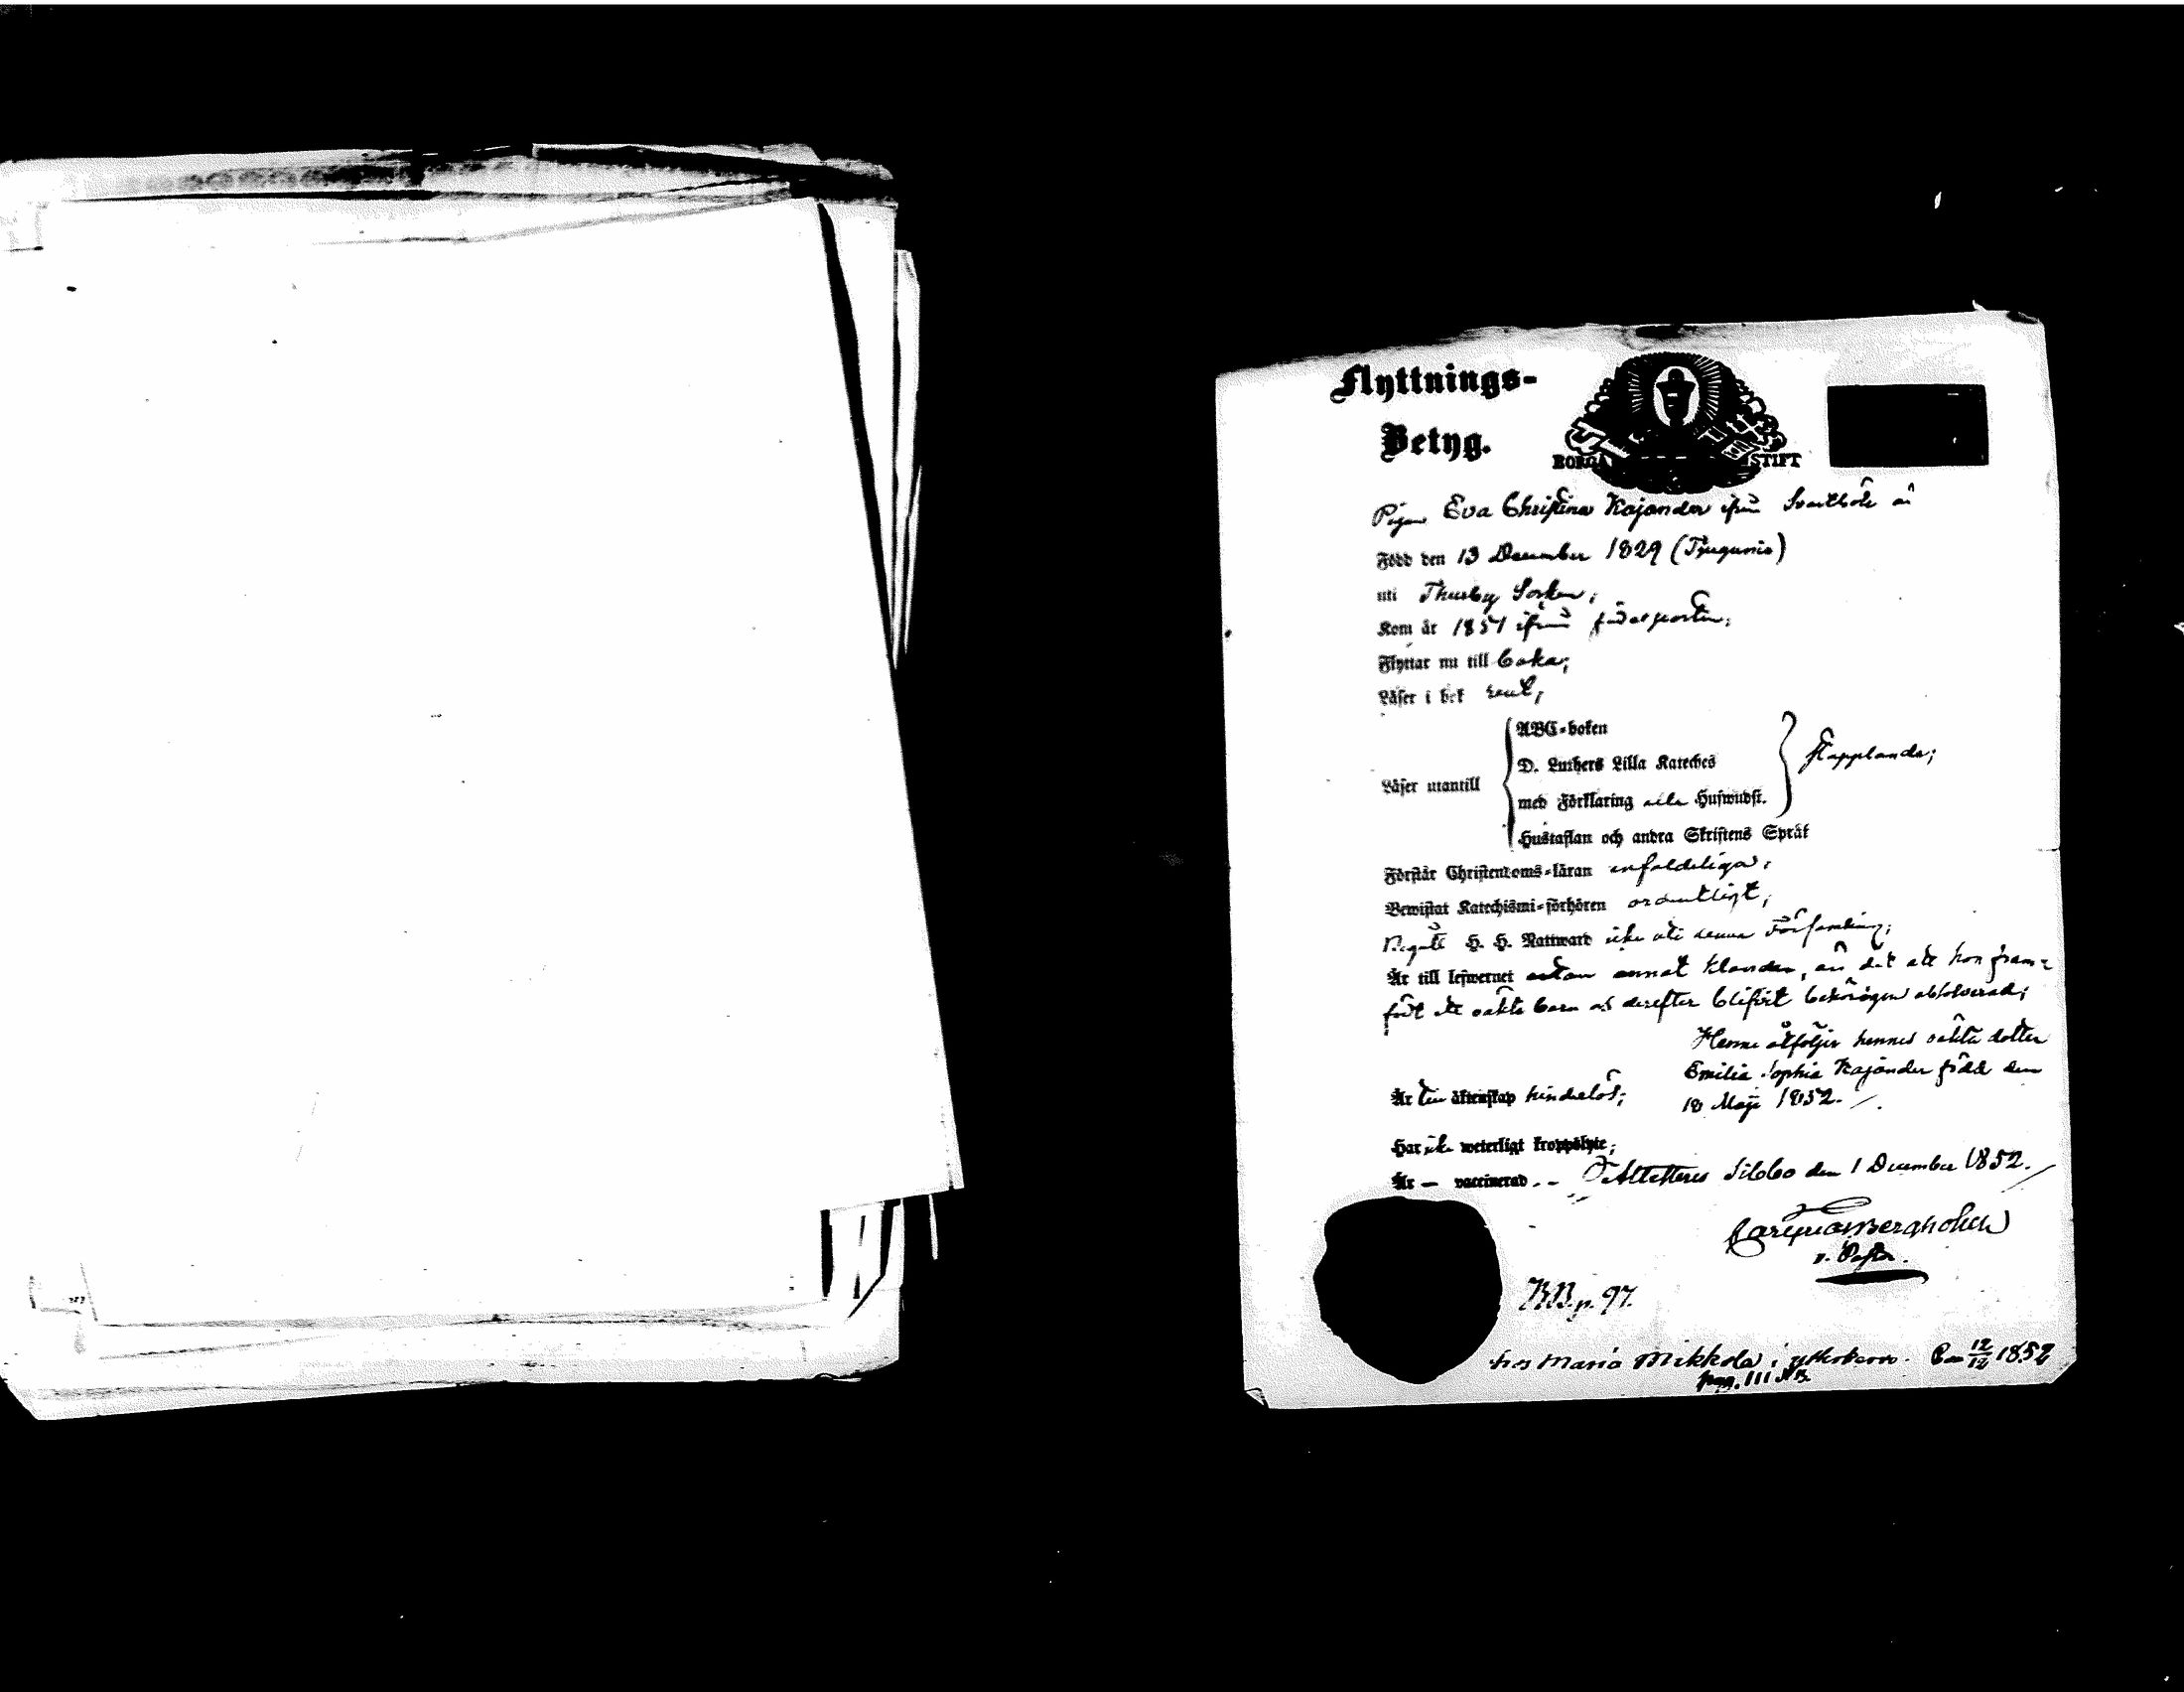 Flyttnings-
Betyg.
BORGÅ STIFT
Pigan Eva Christina Kajander ifrån Svartbäck är
Född den 13 December 1829 (Tjugunio)
uti Thusby Socken;
Kom år 1851 ifrån födelseorten;
Flyttar nu till baka;
Läser i bok rent,
ABC-boken
D. Luthers Lilla Kateches
Läser utantill
med Förklaring eller Hufwudst.
stapplande;
Hustaflan och andra Skriftens Språk
Förstår Christendoms-läran enfaldeliga;
Bewistat Katechismi-förhören ordentligt;
Begått H. H. Nattward icke uti denna Församling;
Är till lefwernet utan annat klander, än det att hon fram-
födt ett oäkta barn och derefter blifvit behörigen absolverad;
Henne åtföljer hennes oäkta dotter
Emilia Sophia Kajander född den
Är till äktenskap hinderlös;
18 Maji 1852.
Har icke weterligt kroppslyte;
Är — vaccinerad --
Attesteras Sibbo den 1 December 1852.
Bergholm
v. Pastor.
KB. p. 97.
hos Maria Mikkola i ytterkorso. Den 12/12 1852
pag. 111 KB.